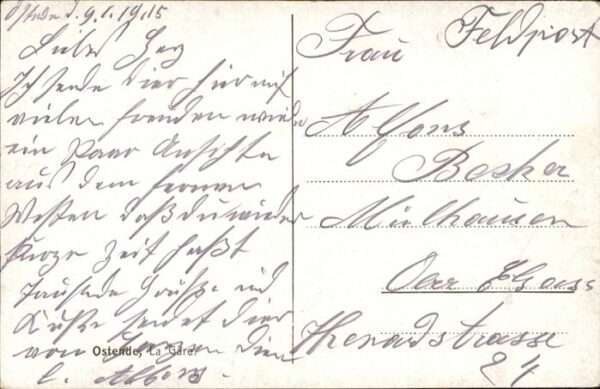 Ostende d. 9.1.1915
Liebes Herz
Ich sende Dier hiermit
vielen Freuden wieder
ein Paar Ansichten
aus dem fernen
Westen daß du wieder
kurze Zeit hast
Tausend Grüße und
Küße sendet dier
von Herzen dein
l. Alfons
Ostende, La Gare.
Feldpost
Frau
Alfons
Becker
Mülhausen
Ober Elsass
24